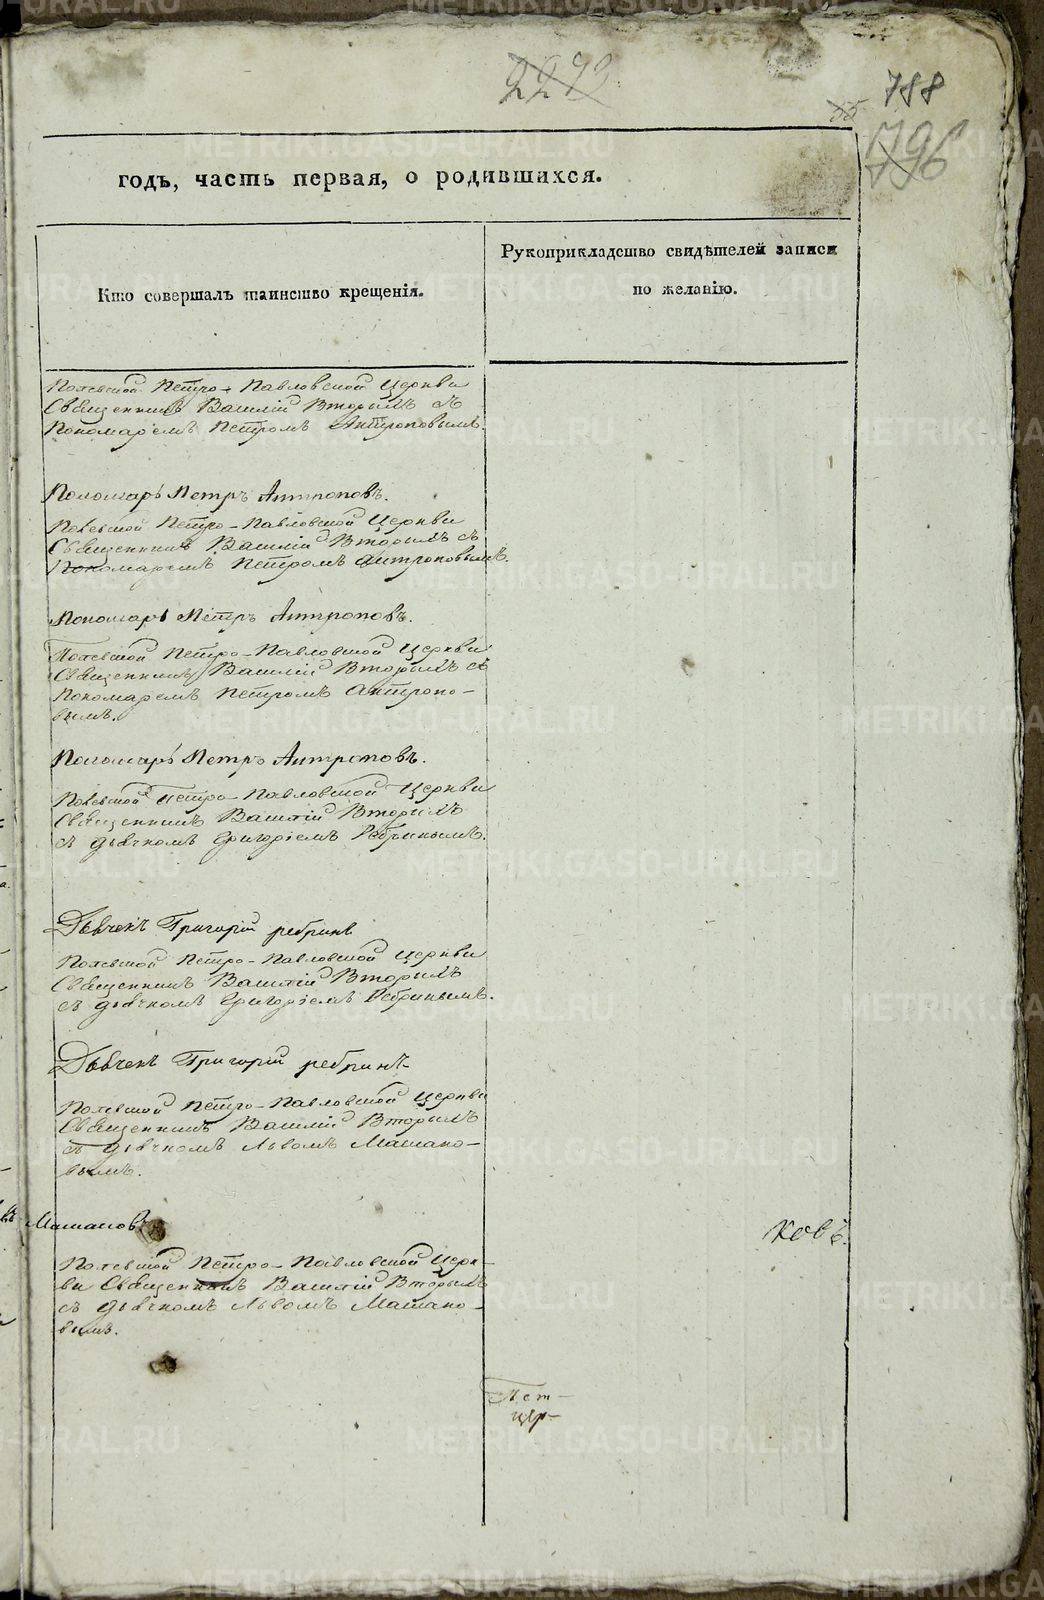 2272
55
788
796
годъ, часть первая, о родившихся.
Кто совершалъ таинство крещенія.
Рукоприкладство свидѣтелей записи
по желанію.
Полевской Петро-Павловской Церкви
Священникъ Василій Вторыхъ съ
Пономаремъ Петромъ Антроповымъ.
Пономарь Петръ Антроповъ.
Полевской Петро-Павловской Церкви
Священникъ Василій Вторыхъ съ
Пономаремъ Петромъ Антроповымъ.
Пономарь Петръ Антроповъ.
Полевской Петро-Павловской Церкви
Священникъ Василій Вторыхъ съ
Пономаремъ Петромъ Антропо-
вымъ.
Пономарь Петръ Антроповъ.
Полевской Петро-Павловской Церкви
Священникъ Василій Вторыхъ
съ дьячкомъ Григоріемъ Ребринымъ.
Дьячекъ Григорій ребринъ
Полевской Петро-Павловской Церкви
Священникъ Василій Вторыхъ
съ дьячкомъ Григоріемъ Ребринымъ.
Дьячекъ Григорій ребринъ
Полевской Петро-Павловской Церкви
Священникъ Василій Вторыхъ
съ дьячкомъ Львомъ Машано-
вымъ.
Машановъ
ковъ.
Полевской Петро-Павловской Церк-
ви Священникъ Василій Вторыхъ
съ дьячкомъ Львомъ Машано-
вымъ.
Пет-
цер-
METRIKI.GASO-URAL.RU